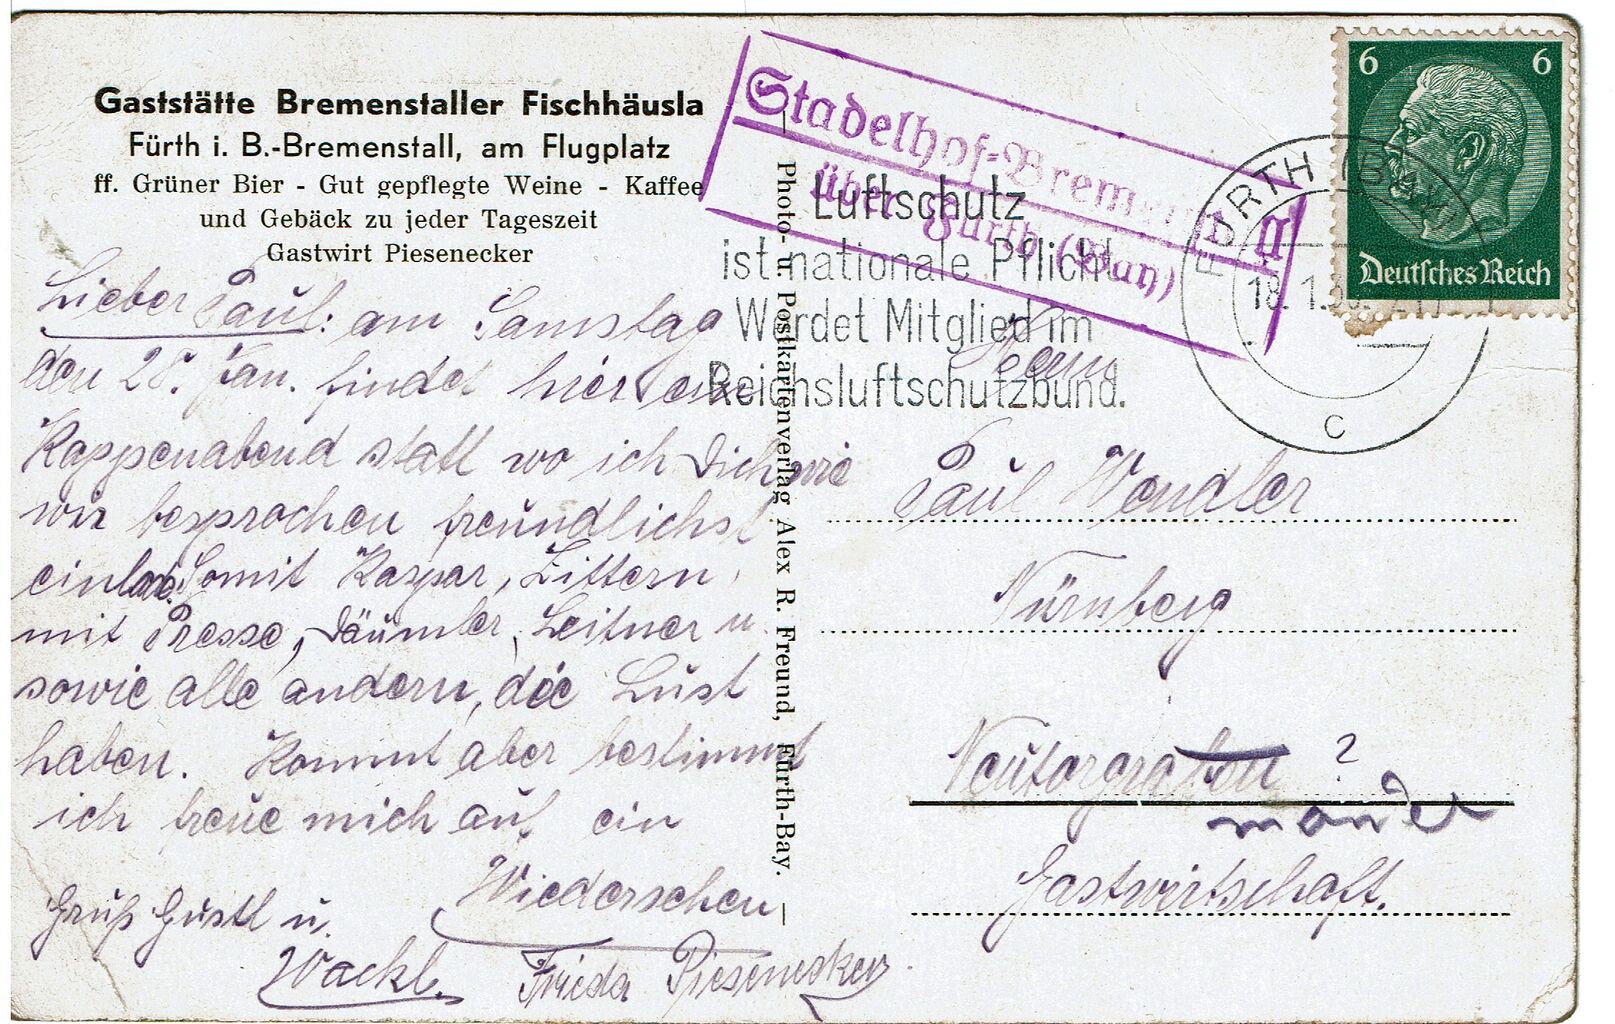 Gaststätte Bremenstaller Fischhäusla
Fürth i. B.-Bremenstall, am Flugplatz
ff. Grüner Bier - Gut gepflegte Weine - Kaffee
und Gebäck zu jeder Tageszeit
Gastwirt Piesenecker
Lieber Paul: am Samstag
den 28. Jan. findet hier ein
Kappenabend statt wo ich Dich wie
wir besprochen freundlichst
einlade. Somit Kaspar, Littern,
mit Presse, Däumler, Leitner u.
sowie alle andern, die Lust
haben. Kommt aber bestimmt
ich freue mich auf ein
Wiedersehen
Gruß Gustl u.
Wackl.
Frieda Piesenecker
Photo- u. Postkartenverlag Alex R. Freund, Fürth-Bay.
Stadelhof-Bremenstall
über Fürth (Bay)
Luftschutz
ist nationale Pflicht
Werdet Mitglied im
Reichsluftschutzbund.
FÜRTH (BAY)
18.1.39
C
6 6
Deutsches Reich
Herrn
Paul Wendler
Nürnberg
Neutorgraben ?
Gastwirtschaft.